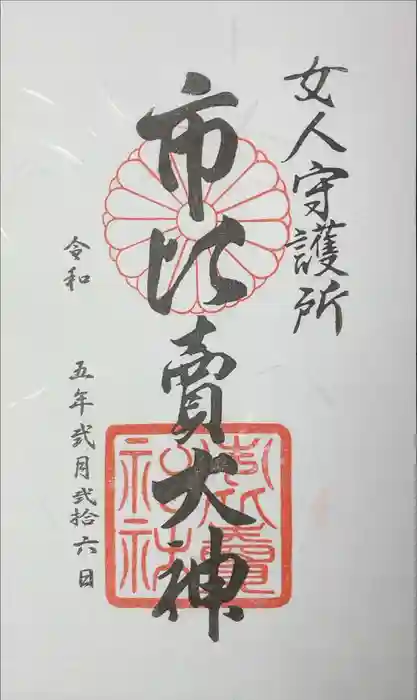 女人守護所
市比賣大神
令和 五年弐月弐拾六日